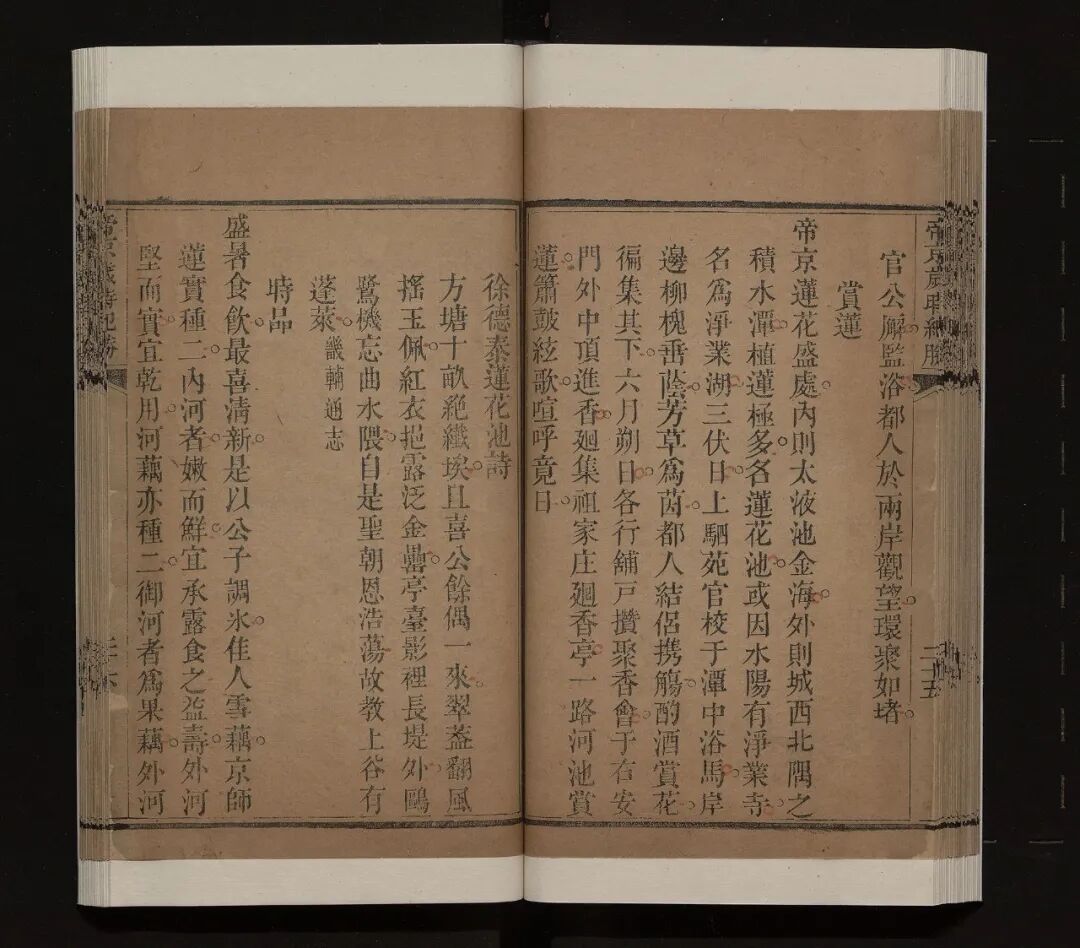 帝京歲時紀勝
二十五
官公廨監浴都人於兩岸觀望環聚如堵
賞蓮
帝京蓮花盛處內則太液池金海外則城西北隅之
積水潭植蓮極多名蓮花池或因水陽有淨業寺
名為淨業湖三伏日上駟苑官校于潭中浴馬岸
邊柳槐垂蔭芳草為茵都人結侶攜觴酌酒賞花
徧集其下六月朔日各行舖戶攢聚香會于右安
門外中頂進香廻集祖家庄廻香亭一路河池賞
蓮簫鼓絃歌喧呼竟日
徐德泰蓮花池詩
方塘十畝絶纖埃且喜公餘偶一來翠葢翻風
搖玉佩紅衣挹露泛金罍亭臺影裡長堤外鷗
鷺機忘曲水隈自是聖朝恩浩蕩故教上谷有
蓬萊畿輔通志
時品
盛暑食飲最喜清新是以公子調氷佳人雪藕京師
蓮實種二內河者嫩而鮮宜承露食之益壽外河
堅而實宜乾用河藕亦種二御河者為果藕外河
帝京歲時紀勝